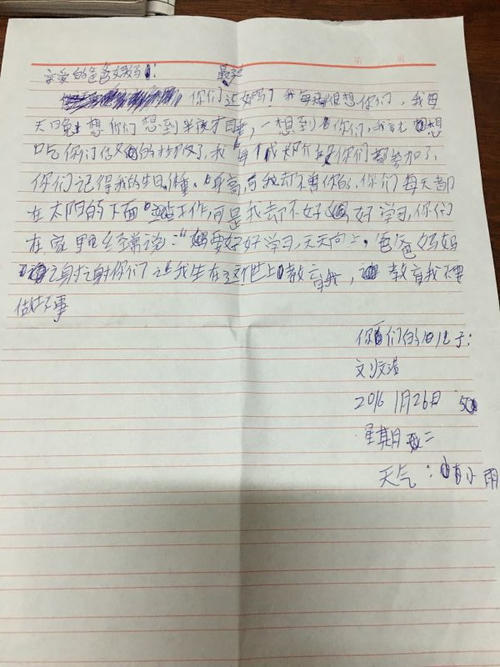 亲爱的爸爸妈妈:
最近
你们还好吗?我每天很想你们,我每
天晚上想你们想到半夜才睡,一想到你们,我就想
吃你们做的饭了,我每你们都参加了,
你们记得我的生日,体重,身高,可我却不知你的,你们每天都
在太阳的下面工作,可是我却不好好学习,你们
在家里经常说:“要好好学习,天天向上,爸爸妈妈
谢谢你们让我生在这个世上教育我,教育我不要
做坏事
你们的儿子:
刘文浩
2016 1月26日
星期二
天气:有小雨